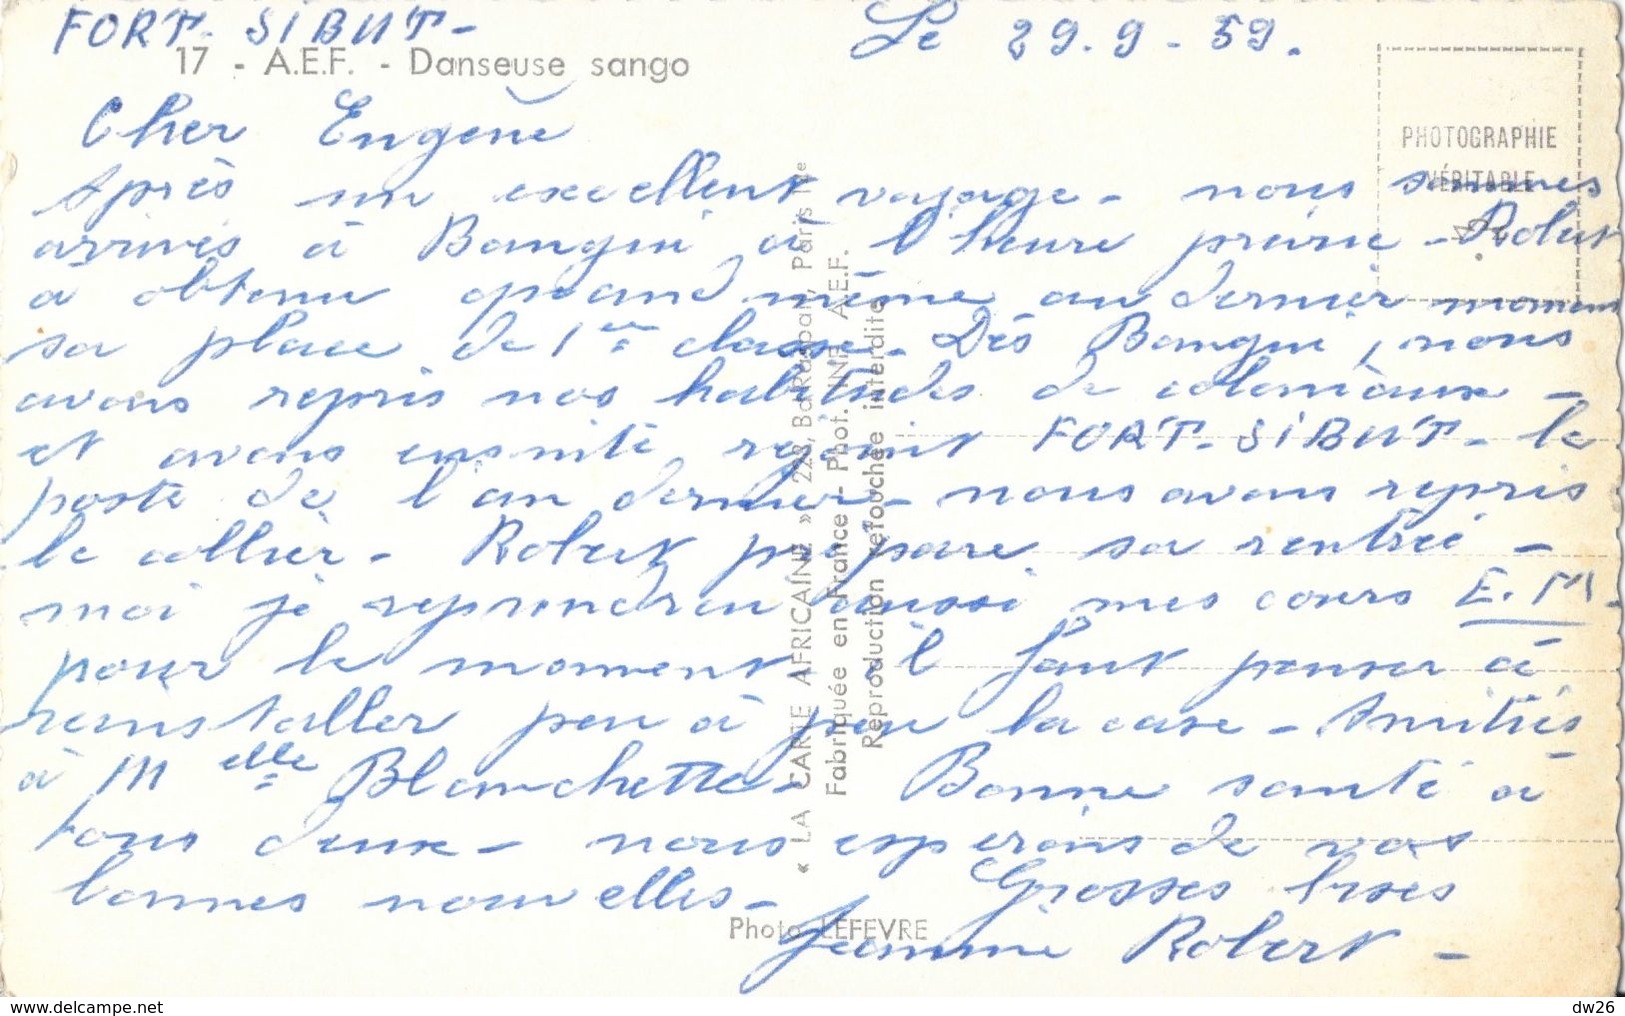 FORT-SIBUT- Le 29.9-59.
17 - A.E.F. - Danseuse sango
Cher Eugène
Après un excellent voyage - nous sommes
arrivés à Bangui à l'heure prévue - Robert
a obtenu quand même au dernier moment
sa place de 1ère classe. Dès Bangui, nous
avons repris nos habitudes de coloniaux -
et avons ensuite rejoint FORT-SIBUT - le
poste de l'an dernier - nous avons repris
le collier - Robert prépare sa rentrée -
moi je reprendrai aussi mes cours E.M.
pour le moment il faut penser à
réinstaller peu à peu la case - Amitiés
à Melle Blanchette - Bonne santé à
tous deux - nous espérons de vos
bonnes nouvelles - Grosses bises
Jeannine Robert -
PHOTOGRAPHIE
VÉRITABLE
« LA CARTE AFRICAINE » 223, Bd Raspail, Paris 14e
Fabriquée en France - Phot. INF. A.E.F.
Reproduction retouche interdite
Photo LEFEVRE
www.delcampe.net
dw26